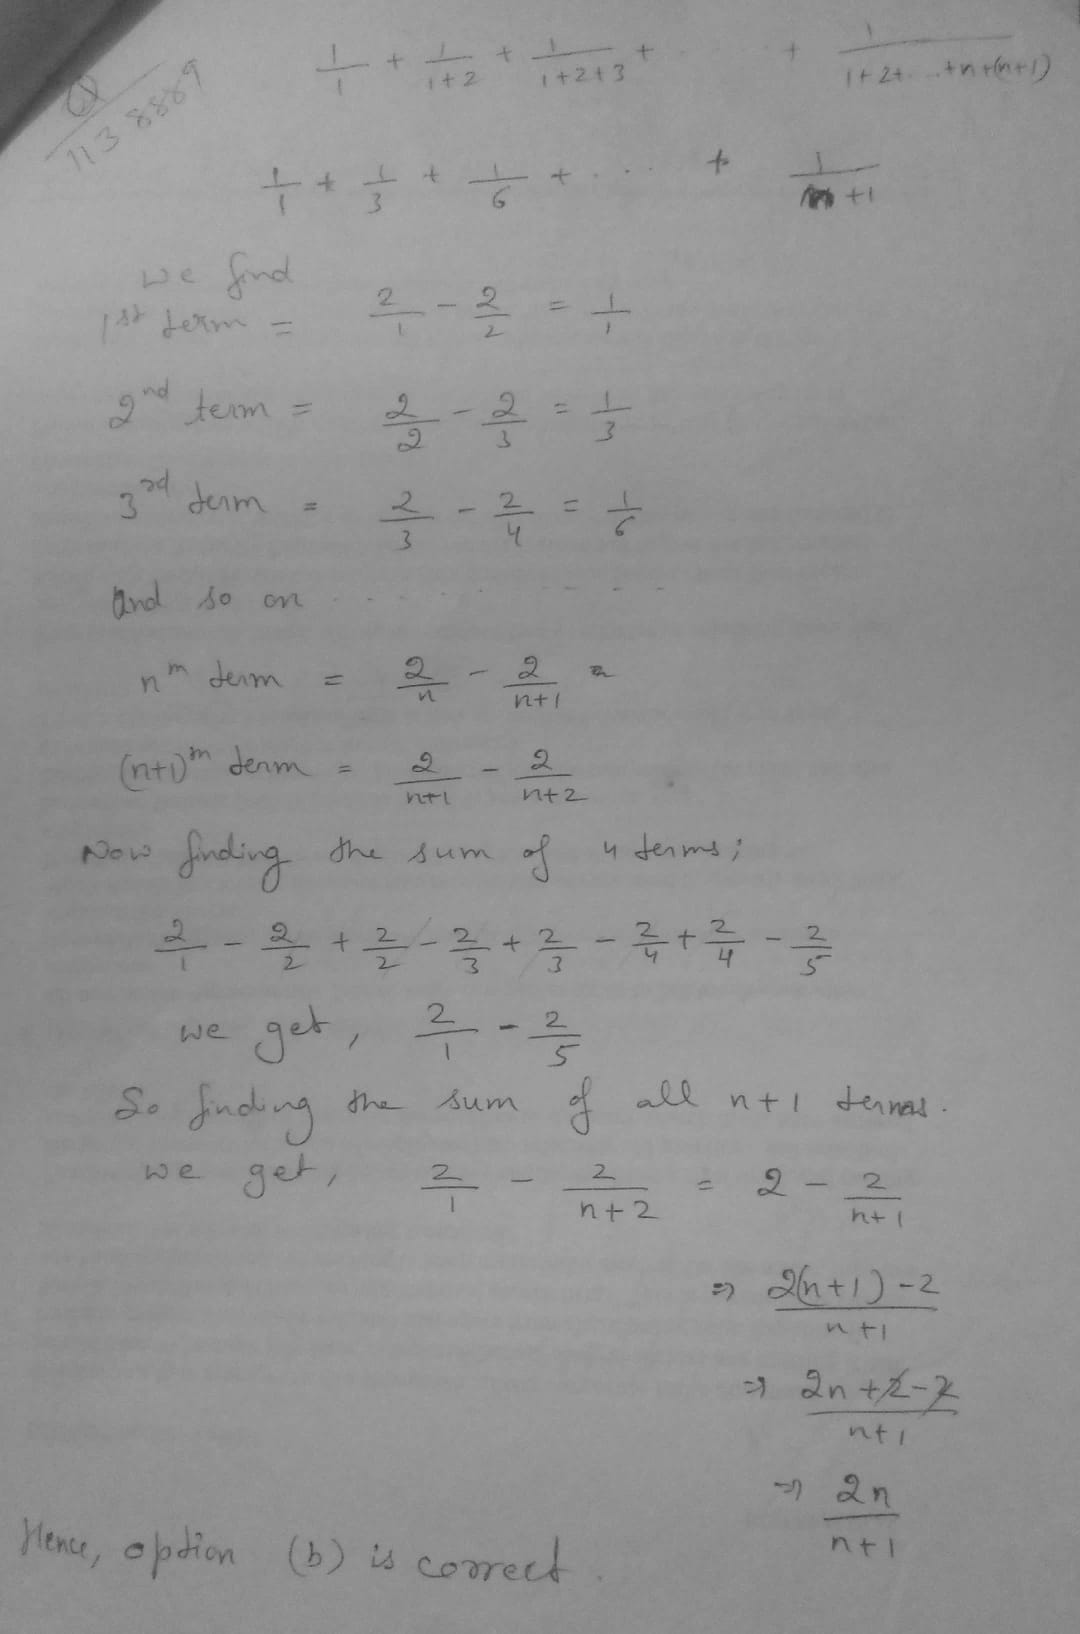 Q 1138889
1/1 + 1/1+2 + 1/1+2+3 + . . . + 1/1+2+...+n+(n+1)
1/1 + 1/3 + 1/6 + . . . + 1/ +1
we find
1st term = 2/1 - 2/2 = 1/1
2nd term = 2/2 - 2/3 = 1/3
3rd term = 2/3 - 2/4 = 1/6
And so on - - - - - - - - - -
nth term = 2/n - 2/n+1
(n+1)th term = 2/n+1 - 2/n+2
Now finding the sum of 4 terms;
2/1 - 2/2 + 2/2 - 2/3 + 2/3 - 2/4 + 2/4 - 2/5
we get, 2/1 - 2/5
So finding the sum of all n+1 terms.
we get, 2/1 - 2/n+2 = 2 - 2/n+1
⇒ 2(n+1)-2/n+1
⇒ 2n+2-2/n+1
⇒ 2n/n+1
Hence, option (b) is correct.